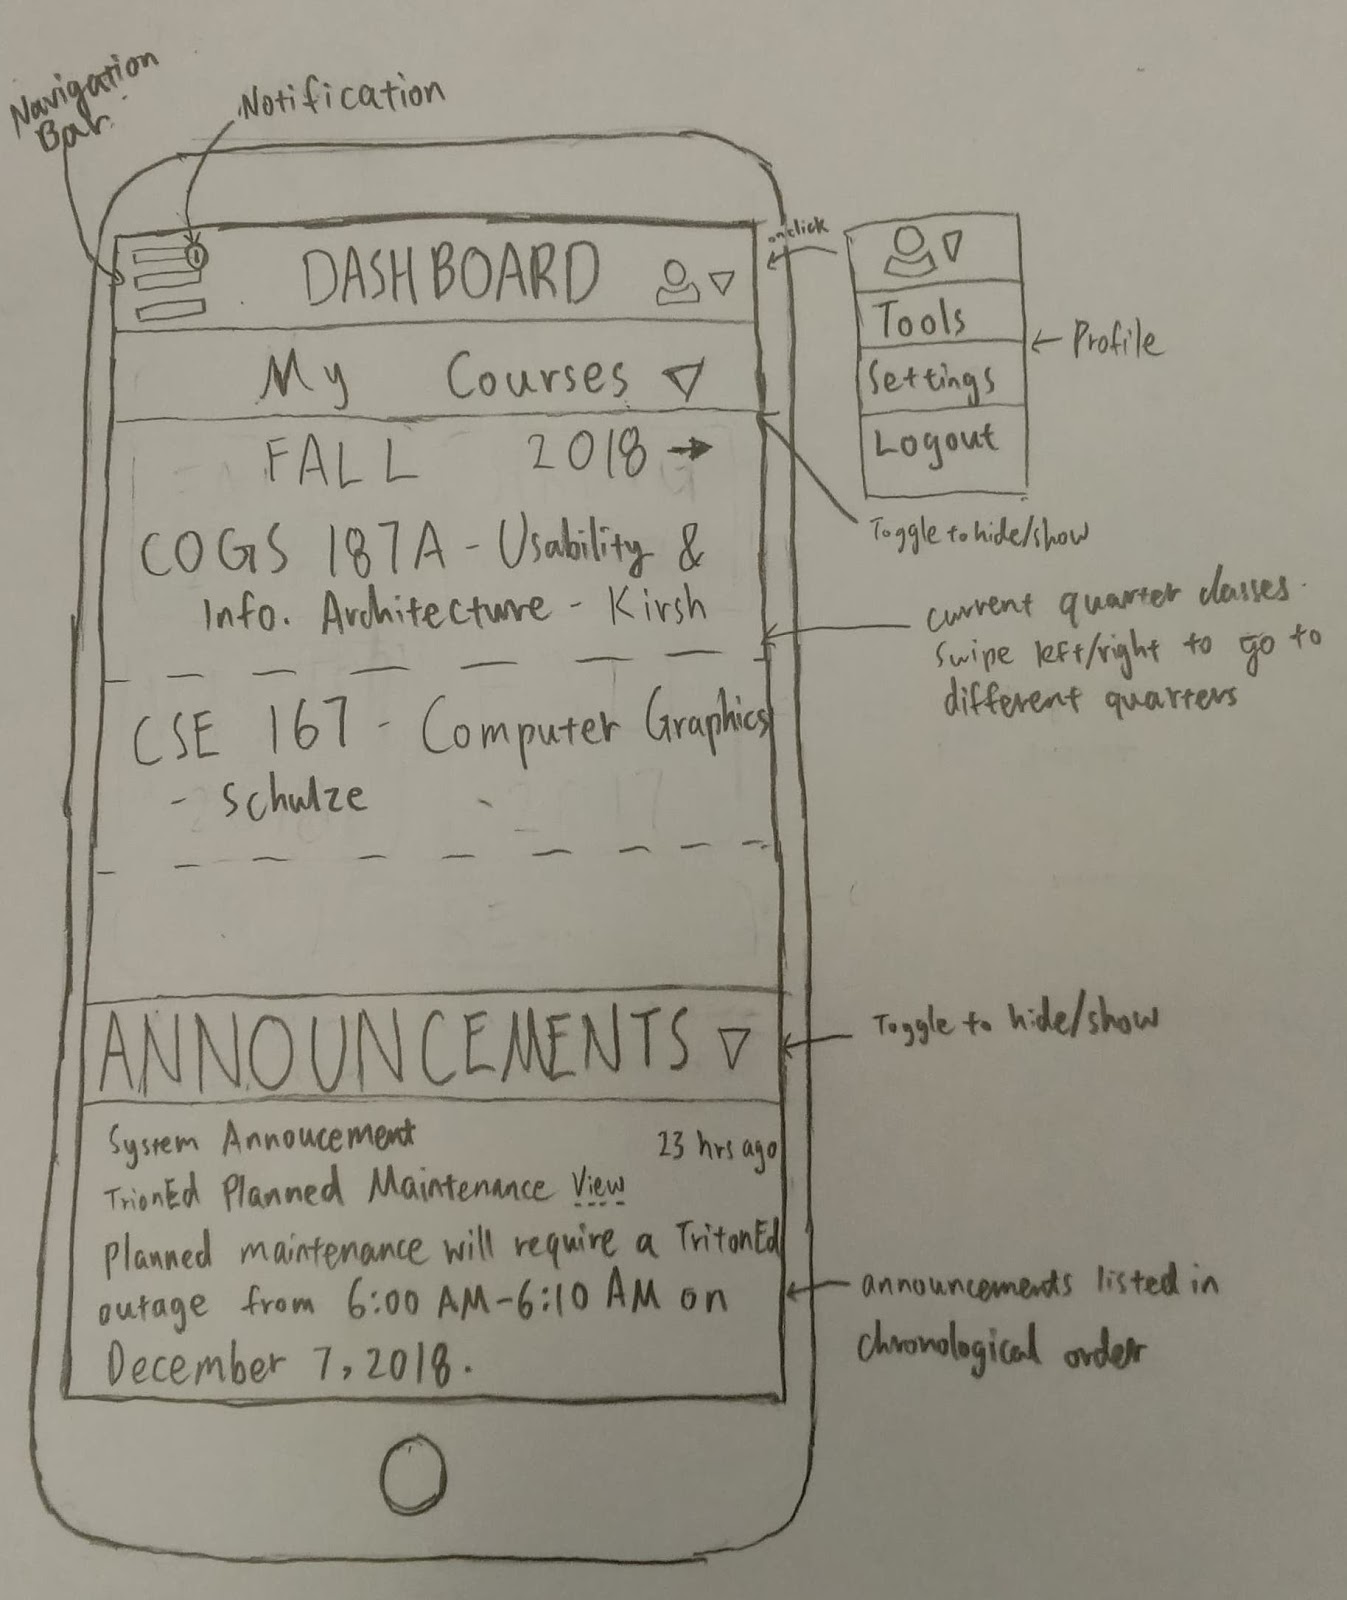 Navigation
Bar.
Notification
DASHBOARD
onclick
Tools
Settings
Logout
Profile
My Courses
FALL 2018 →
Toggle to hide/show
COGS 187A - Usability &
Info. Architecture - Kirsh
current quarter classes.
swipe left/right to go to
different quarters
CSE 167 - Computer Graphics
- Schulze
ANNOUNCEMENTS
Toggle to hide/show
System Annoucement
23 hrs ago
TrionEd Planned Maintenance View
Planned maintenance will require a TritonEd
outage from 6:00 AM-6:10 AM on
December 7, 2018.
announcements listed in
chronological order